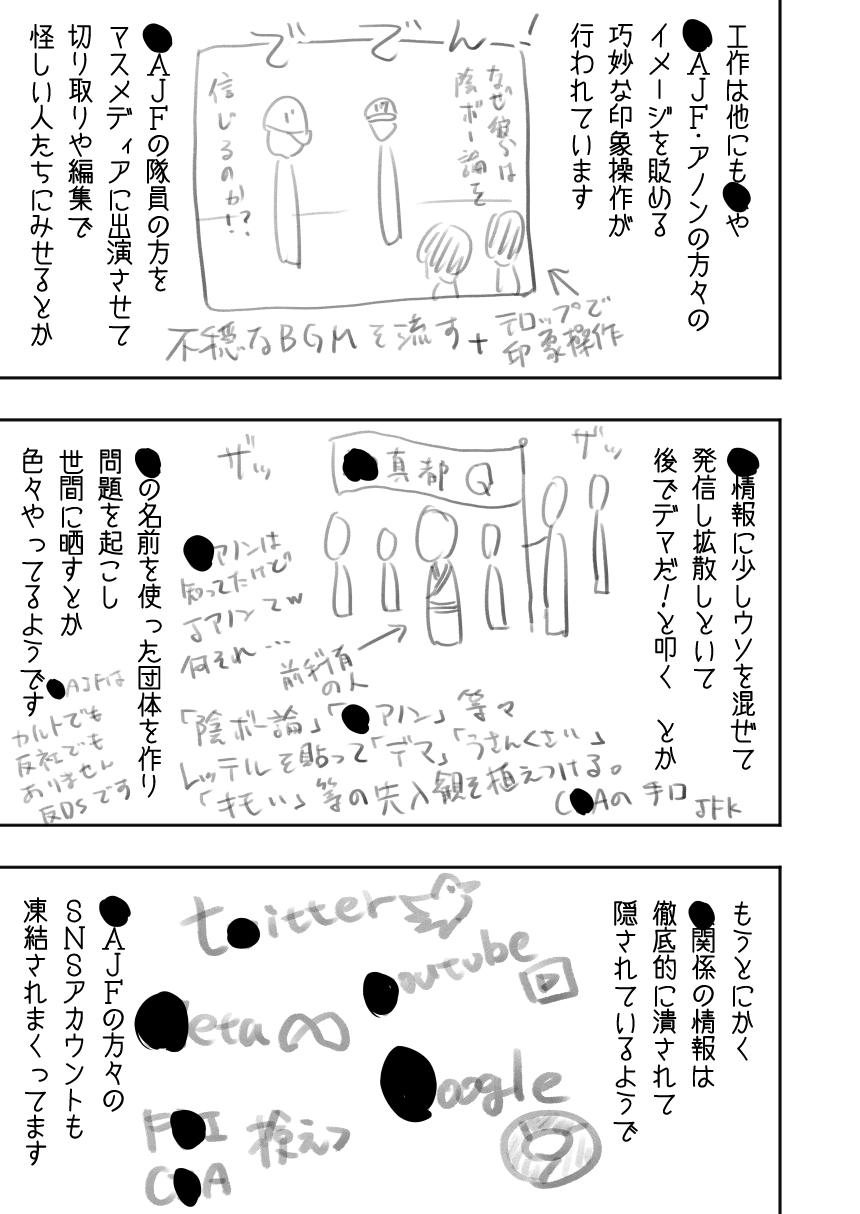 工作は他にも●や
●AJF・アノンの方々の
イメージを貶める
巧妙な印象操作が
行われています
でーでん!
なぜ彼らは
陰ボー論を
信じるのか!?
テロップで
印象操作
不穏なBGMを流す+
●AJFの隊員の方を
マスメディアに出演させて
切り取りや編集で
怪しい人たちにみせるとか
●情報に少しウソを混ぜて
発信し拡散しといて
後でデマだ!と叩く とか
ザッ
●真都Q
ザッ
●アノンは
知ってたけど
Jアノンてw
何それ…
前科有
の人
「陰ボー論」「●アノン」等々
レッテルを貼って「デマ」「うさんくさい」
「キモい」等の先入観を植えつける。
C●Aの手口
JFK
●の名前を使った団体を作り
問題を起こし
世間に晒すとか
色々やってるようです
●AJFは
カルトでも
反社でも
ありません
反DSです
もうとにかく
●関係の情報は
徹底的に潰されて
隠されているようで
t●itter
●outube
●eta
●oogle
F●I 検えつ
C●A
●AJFの方々の
SNSアカウントも
凍結されまくってます